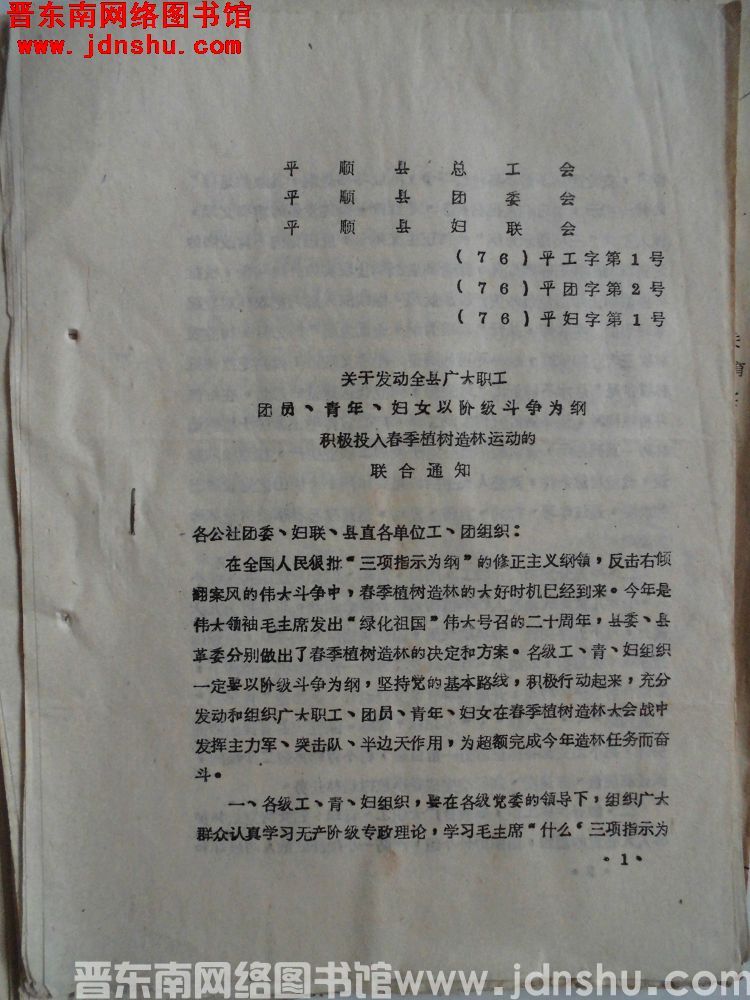 晋东南网络图书馆
www.jdnshu.com
平顺县总工会
平顺县团委会
平顺县妇联会
(76)平工字第1号
(76)平团字第2号
(76)平妇字第1号
关于发动全县广大职工
团员、青年、妇女以阶级斗争为纲
积极投入春季植树造林运动的
联合通知
各公社团委、妇联、县直各单位工、团组织：
在全国人民狠批“三项指示为纲”的修正主义纲领，反击右倾
翻案风的伟大斗争中，春季植树造林的大好时机已经到来。今年是
伟大领袖毛主席发出“绿化祖国”伟大号召的二十周年，县委、县
革委分别做出了春季植树造林的决定和方案。各级工、青、妇组织
一定要以阶级斗争为纲，坚持党的基本路线，积极行动起来，充分
发动和组织广大职工、团员、青年、妇女在春季植树造林大会战中
发挥主力军、突击队、半边天作用，为超额完成今年造林任务而奋
斗。
一、各级工、青、妇组织，要在各级党委的领导下，组织广大
群众认真学习无产阶级专政理论，学习毛主席“什么‘三项指示为
·1·
晋东南网络图书馆www.jdnshu.com